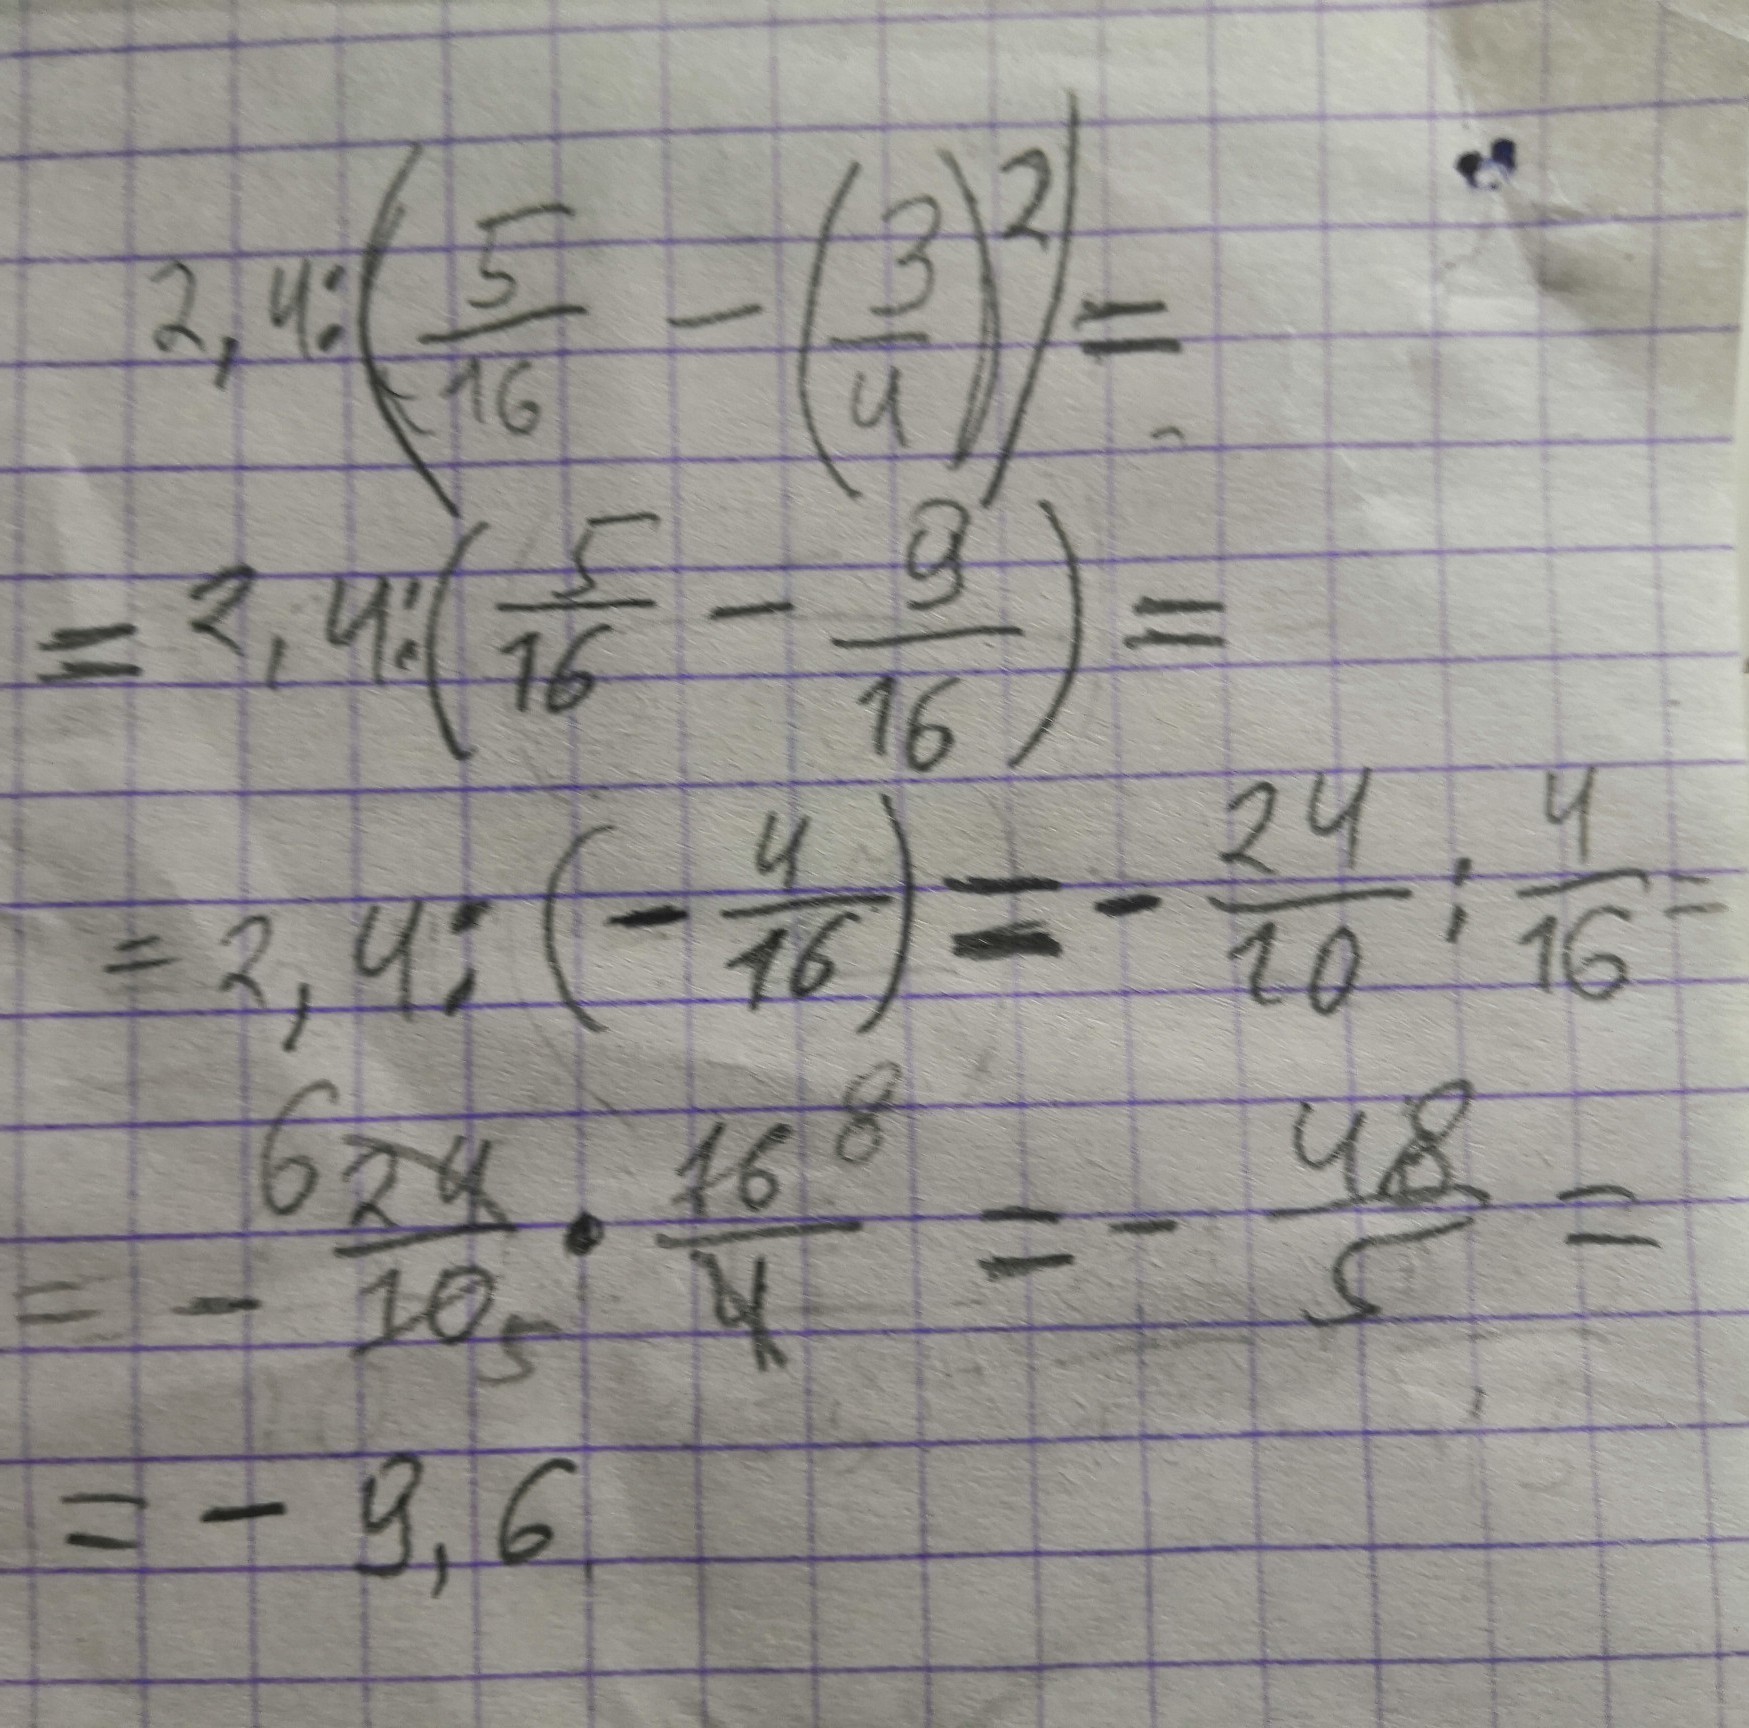 2,4:(5/16 - (3/4)^2) =
= 2,4:(5/16 - 9/16) =
= 2,4:(- 4/16) = - 24/10 : 4/16 =
= - 6 24/10 5 · 16 8/4 = - 48/5 =
= - 9,6